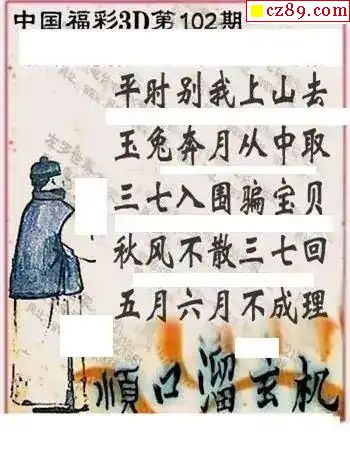 cz89.com
中国福彩3D第102期
平时别我上山去
玉兔奔月从中取
三七入围骗宝贝
秋风不散三七回
五月六月不成理
顺口溜玄机